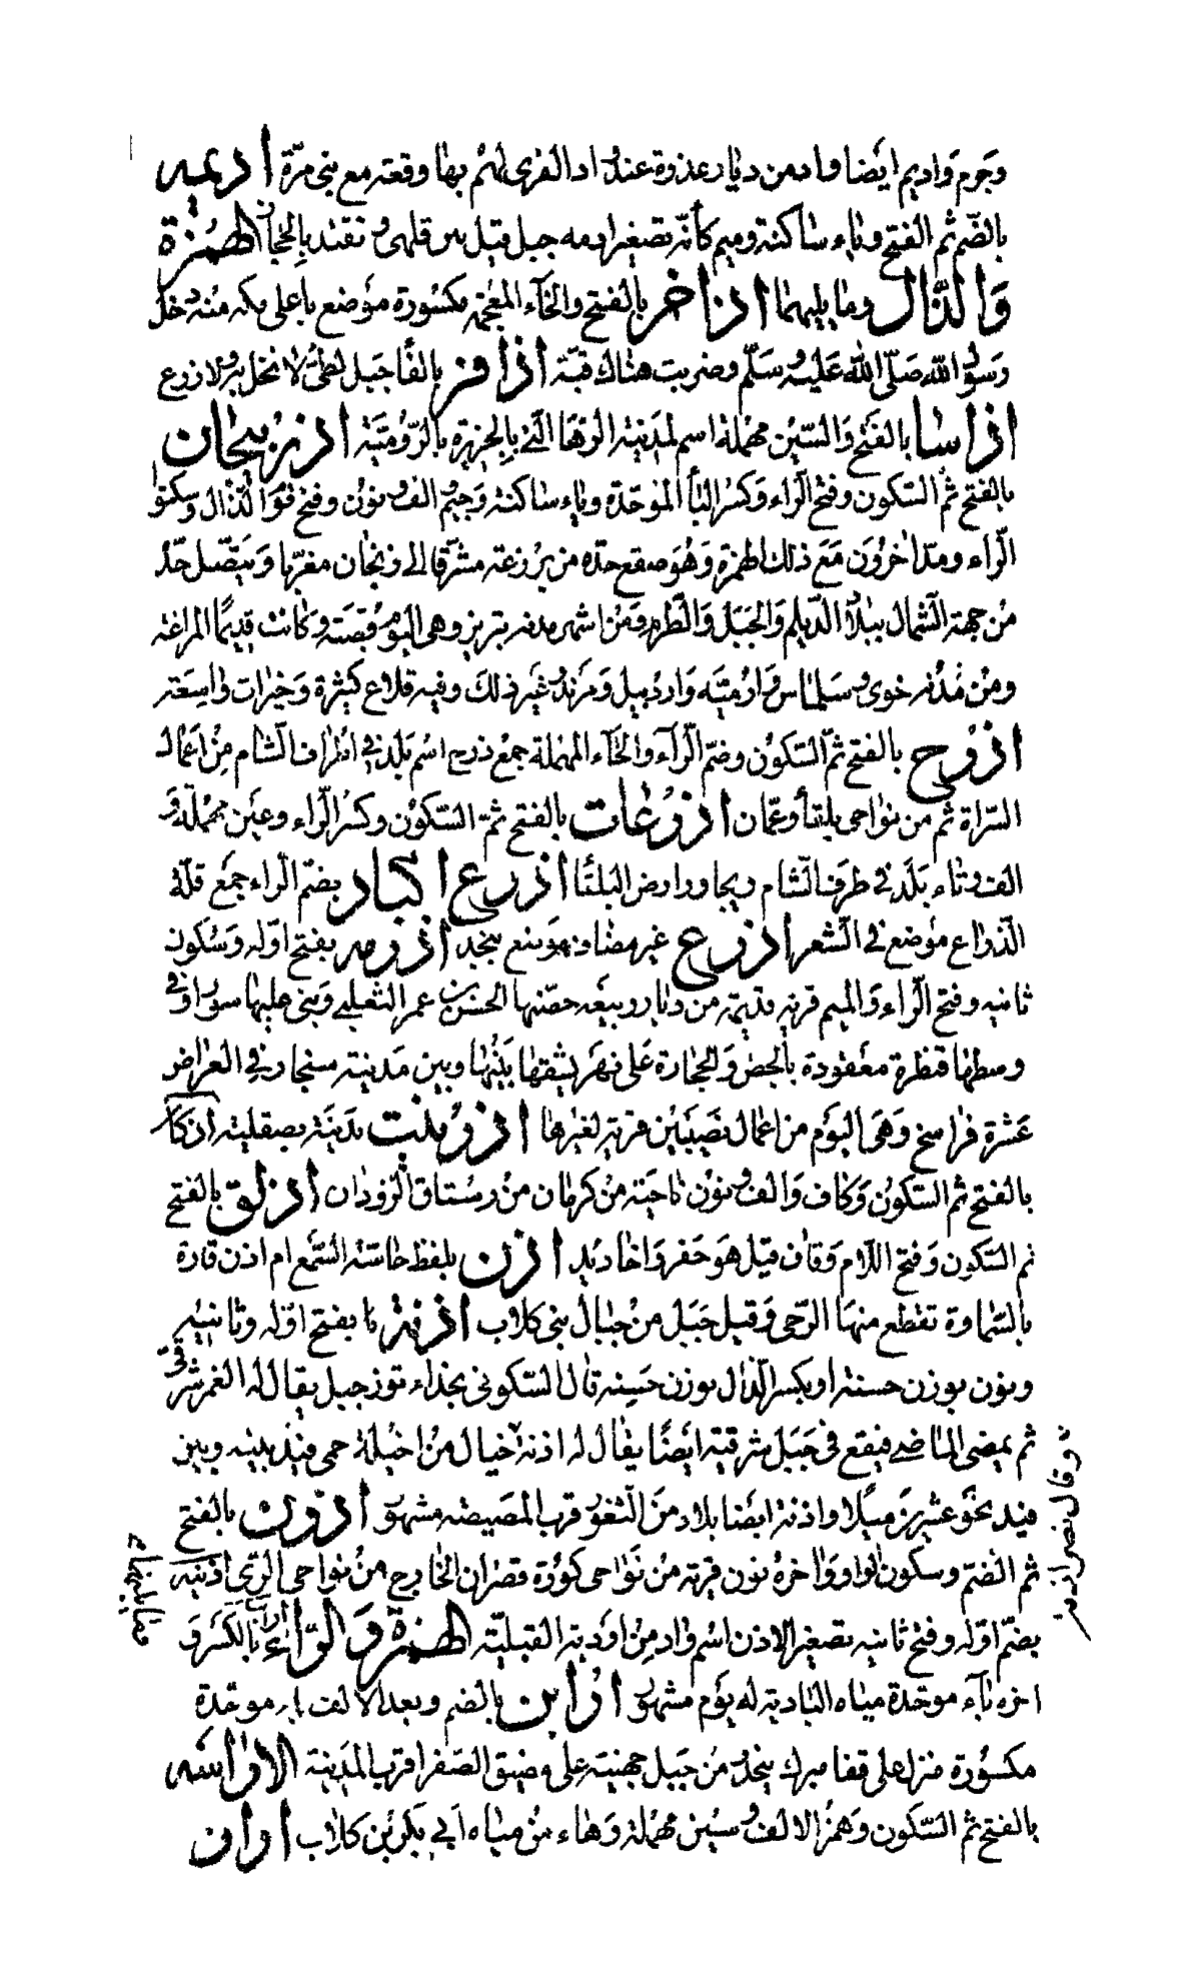 وجرم واديم ايضا واد من ديار عذرة عند واد القرى لهم بها وقعة مع بني مرة أديمه
بالضم ثم الفتح وياء ساكنة وميم كأنه تصغير ادمه جبل قيل بين قلهى و تقتد بالحجاز الهمزة
والذال وما يليهما اذاخر بالفتح والخاء المعجمة مكسورة موضع باعلى مكه منه دخل
رسول الله صلى الله عليه وسلم وضربت هناك قبة اذافر بالفا جبل لطئ لا نخل به ولا زرع
اذاسا بالفتح والسين مهملة اسم لمدينة الرها التي بالجزيرة بالرومية اذربيجان
بالفتح ثم السكون وفتح الراء وكسر البأ الموحدة وياء ساكنة وجيم والف ونون وفتح قوم الذال وسكنوا
الراء ومد اخرون مع ذلك الهمزة وهو صقع حده من برزعة مشرقا الى زنجان مغربا ويتصل حد
من جهة الشمال ببلاد الديلم والجبل والطرم ومن اشهر مدنه تبريز وهى اليوم قصبته وكانت قديما المراغة
ومن مدنه خوى وسلماس وارميه واردبيل ومرند وغير ذلك وفيه قلاع كثيرة وخيرات واسعة
اذرح بالفتح ثم السكون وضم الراء والحاء المهملة جمع ذريح اسم بلد في اطراف الشام من اعمال
السراة ثم من نواحى بلقأ وعمان اذرعات بالفتح ثم السكون وكسر الراء وعين مهملة و
الف وتاء بلد في طرف الشام ويجاور ارض البلقأ اذرع اكباد بضم الراء جمع قلة
الذراع موضع في الشعر اذرع غير مضاف موضع بنجد اذرمه بفتح اوله وسكون
ثانيه وفتح الراء والميم قرية قديمة من ديار ربيعه حصنها الحسن بن عمر الثعلبي وبنى عليها سورا وفي
وسطها قنطرة معقودة بالجص والحجارة على نهر يشقها بينها وبين مدينة سنجار في العراض
عشرة فراسخ وهى اليوم من اعمال نصيبين قرية لغيرها اذرنت مدينة بصقلية اذكا
بالفتح ثم السكون وكاف والف ونون ناحية من كرمان من رستاق الروذان اذلق بالفتح
ثم السكون وفتح اللام وقاف قيل هو حفر واخاديد اذن بلفظ حاسة السمع ام اذن قارة
بالسماوة تقطع منها الرحى وقيل جبل من جبال بني كلاب اذنة نا بفتح اوله وثانيه
ونون بوزن حسنة او بكسر الذال بوزن حسنه قال السكونى بحذاء توز جبل يقال له الغمر شرقى
ثم يمضى الماضي فيقع في جبل شرقيه ايضا يقال له اذنة خيال من اخيلة حمى فيد بينه وبين
فيد نحو عشرين ميلا واذنة ايضا بلاد من الثغور قرب المصيصة مشهور اذون بالفتح
ثم الضم وسكون الواو واخره نون قرية من نواحى كورة قصران الخارج من نواحى الري اذينه
بضم اوله وفتح ثانيه تصغير الاذن اسم واد من اودية القبلية الهمزة والراء اراب بالكسر و
اخره باء موحدة مياه البادية له يوم مشهور ارابن بالضم وبعد الالف باء موحدة
مكسورة منزل على قفا مبرك ينحدر من جبل جهينة على مضيق الصفرا قرب المدينة الاراسه
بالفتح ثم السكون وهمز الالف وسين مهملة وهاء من مياه ابي بكر بن كلاب اران
وقال نصر اذن